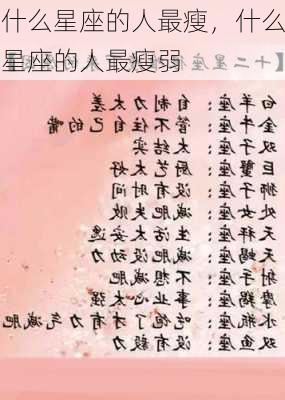 什么星座的人最瘦，什么
星座的人最瘦弱
十二星座
白羊座：自制力太差
金牛座：管不住自己的嘴
双子座：太结实
巨蟹座：厨艺太好
狮子座：没有时间
处女座：减肥失败
天秤座：生活太安逸
天蝎座：减肥没动力
射手座：不想减肥
摩羯座：事业心太强
水瓶座：吃饱了才有力气减肥
双鱼座：没有毅力